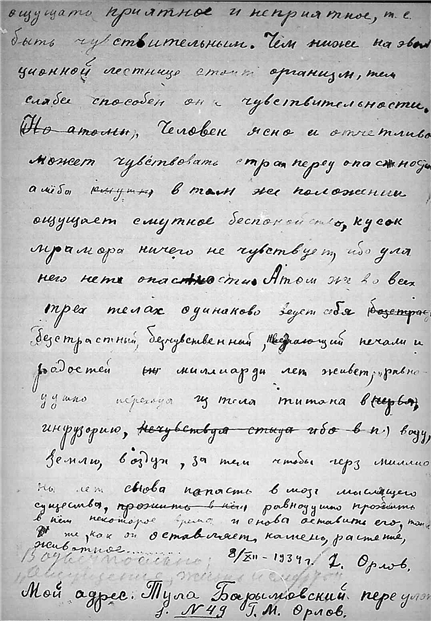 ощущать приятное и неприятное, т.е.
быть чувствительным. Чем ниже на эволю
ционной лестнице стоит организм, тем
слабее способен он к чувствительности.
(Но атомы, Человек ясно и отчетливо
может чувствовать страх перед опасностью
амёба в том же положении
ощущает смутное беспокойство, кусок
мрамора ничего не чувствует, ибо для
него нет опасности. Атом же во всех
трех телах одинаково ведет себя
безстрастный, безчувственный, печали и
радостей миллиарды лет живет, равно-
душно переходя из тела титана в
инфузорию, (нечувствуя стыда ибо в п.) воду,
землю, воздух, за тем чтобы через миллио
ны лет снова попасть в мозг мыслящего
существа, прожить в нём равнодушно прожить
в нём некоторое время и снова оставить его,
же как он оставляет камень, растение,
животное..........
8/XII - 1934 г. Г. Орлов.
Мой адрес: Тула Барымовский переулок
д. №49 Г. М. Орлов.